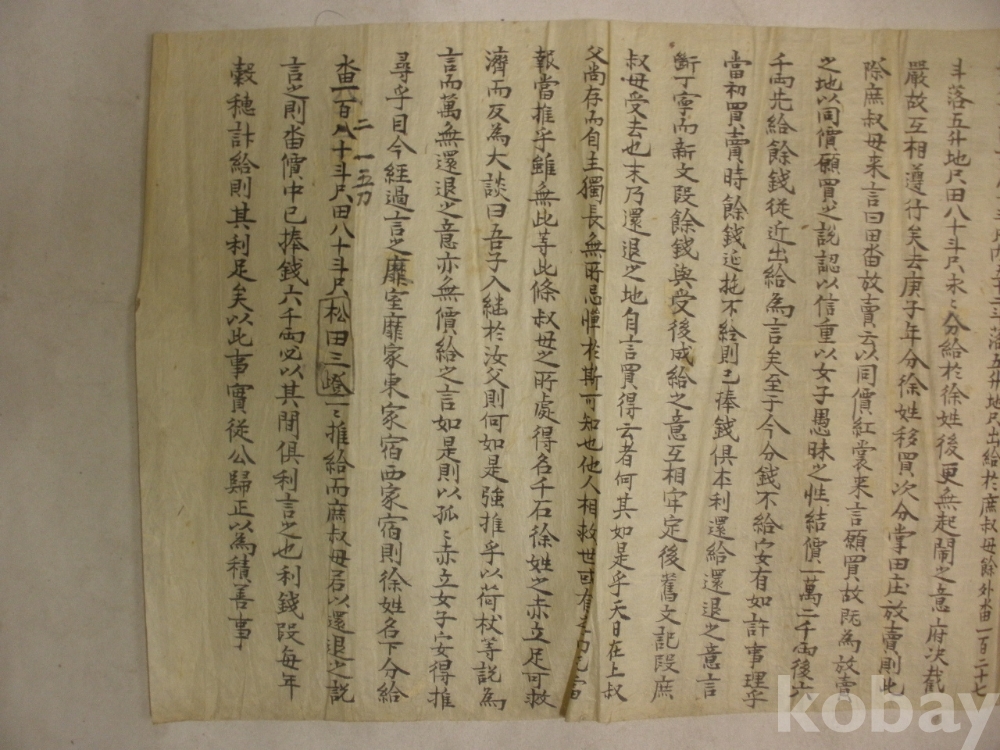 三落五升地尺出給於庶叔母餘外畓一百二十七
斗落五升地尺田八十斗尺永〻分給於徐姓後更無起鬧之意府决截
嚴故互相遵行矣去庚子年分徐姓移買次分掌田庄放賣則此
除庶叔母来言曰田畓放賣云以同價紅裳来言願買故既為放賣
之地以同價願買之説認以信重以女子愚昧之性結價一萬二千兩後六
千兩先給餘錢從近出給為言矣至于今分錢不給安有如許事理乎
當初買賣時餘錢延拖不給則已捧錢俱本利還給還退之意言
斷丁寧而新文段餘錢與受後成給之意互相牢定後舊文記段庶
叔母受去也末乃還退之地自言買得云者何其如是乎天日在上叔
父尚存而自主獨長無所忌憚於斯可知也他人相救世或有之
報當推乎雖無此等此條叔母之所處得名千石徐姓之赤立足可救
濟而反為大談曰吾子入継於汝父則何如是強推乎以荷杖等説為
言而萬無還退之意亦無價給之言如是則以孤〻赤立女子安得推
尋乎目今経過言之靡室靡家東家宿西家宿則徐姓名下分給
畓一百八十斗尺田八十斗尺松田三嶝一〻推給而庶叔母若以還退之説
二 一五刀
言之則畓價中已捧錢六千兩必以其間俱利言之也利錢段每年
穀穗計給則其利足矣以此事實從公歸正以為積善事
kobay